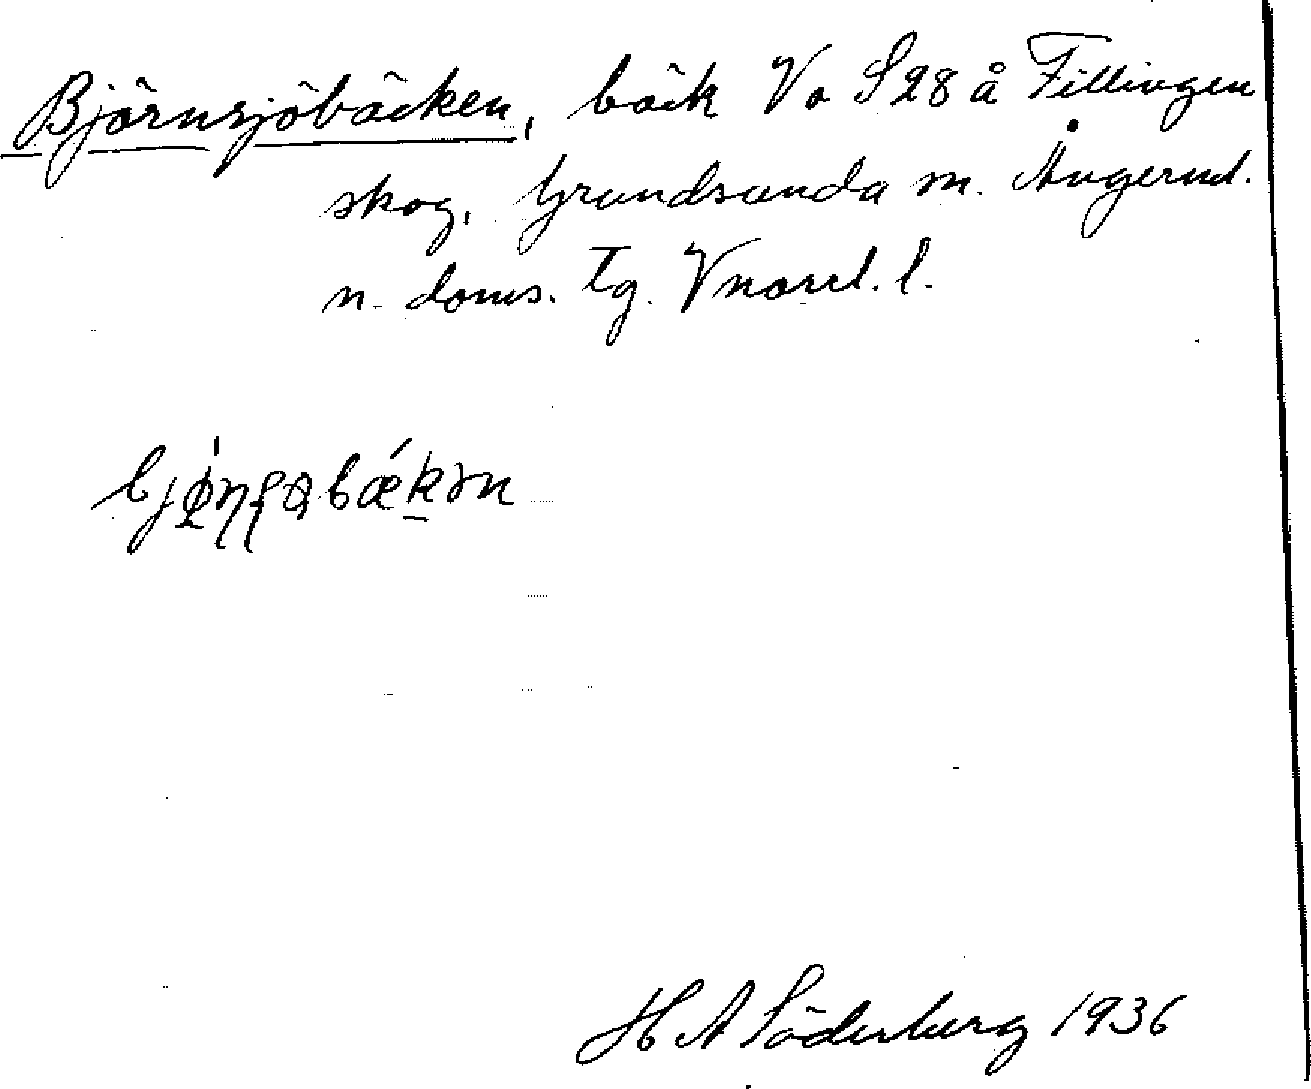 Björnsjöbäcken, bäck Va S28 å Fillingen
skog, Grundsunda sn. Ångerml.
n. doms. tg. Vnorrl. l.
H A Söderberg 1936